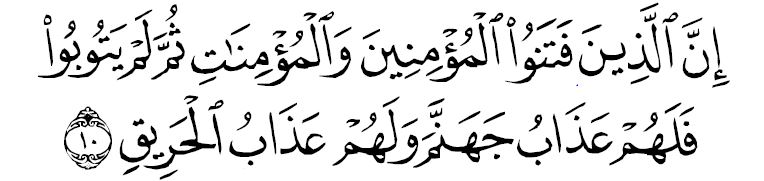 إِنَّ ٱلَّذِينَ فَتَنُوا۟ ٱلْمُؤْمِنِينَ وَٱلْمُؤْمِنَٰتِ ثُمَّ لَمْ يَتُوبُوا۟
فَلَهُمْ عَذَابُ جَهَنَّمَ وَلَهُمْ عَذَابُ ٱلْحَرِيقِ ١٠